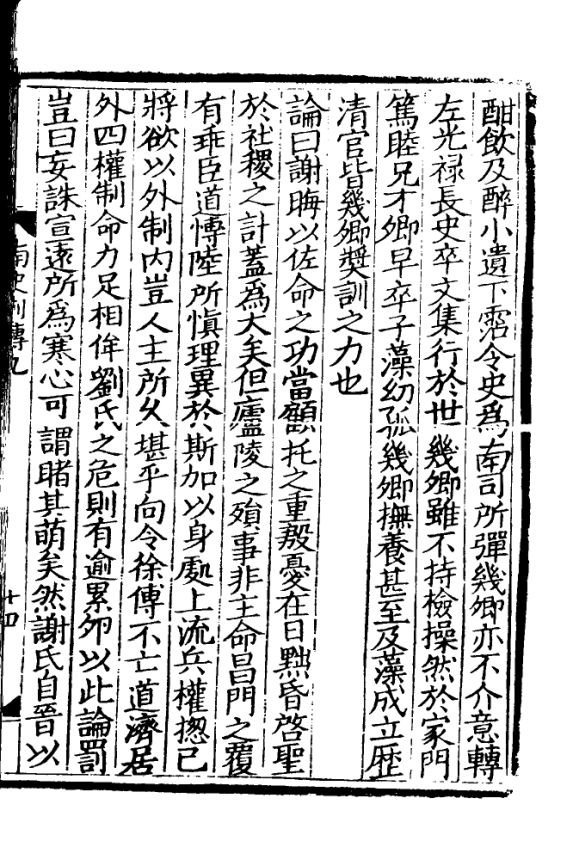 酣飲及醉小遺下霑令史爲南司所彈幾卿亦不介意轉
左光禄長史卒文集行於世幾卿雖不持檢操然於家門
篤睦兄才卿早卒子藻幼孤幾卿撫養甚至及藻成立歷
清官皆幾卿奬訓之力也
論曰謝晦以佐命之功當顧托之重殷憂在日黜昏啓聖
於社稷之計蓋爲大矣但廬陵之殞事非主命昌門之覆
有乖臣道博陸所慎理異於斯加以身處上流兵權揔已
將欲以外制内豈人主所乆堪乎向令徐傅不亡道濟居
外四權制命力足相侔劉氏之危則有逾累夘以此論罰
豈曰妄誅宣遠所爲寒心可謂睹其萌矣然謝氏自晉以
南史列傳九
十四